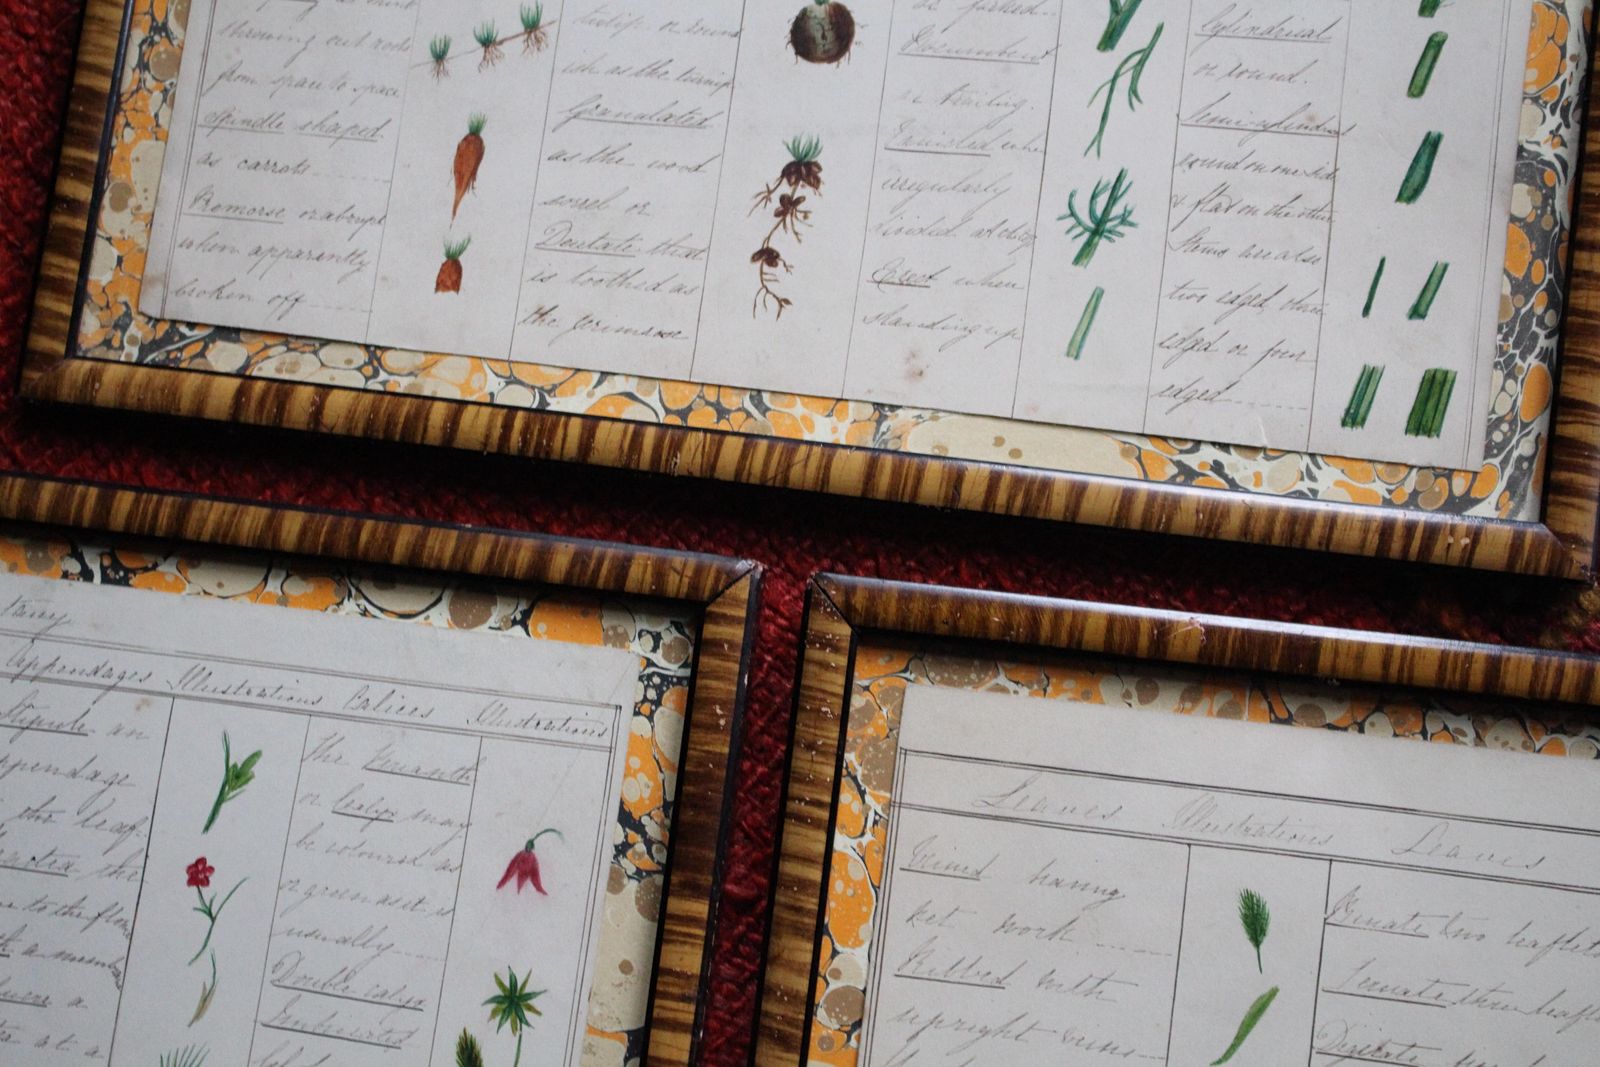 throwing out roots
from space to space
Spindle shaped
as carrots
Premorse or abrupt
when apparently
broken off
tulip or round
ish as the turnip
Granulated
as the wood
sorrel or
Dentate that
is toothed as
the primrose
or forked
Procumbent
or trailing.
when
irregularly
divided
Erect when
standing up
Cylindrical
or round.
Semi-cylindrical
round on one side
& flat on the other
Stems are also
two edged, three
edged or four
edged
tany
Appendages Illustrations Calices Illustrations
Stipule an
ppendage
the leaf
the
to the flow
a
at a
the Perianth
or Calyx may
be coloured as
or green as it is
usually
Double calyx
Imbricated
Leaves Illustrations Leaves
Veined having
net work
Ribbed with
upright veins
Binate two leaflets
Ternate three leafl
Digitate